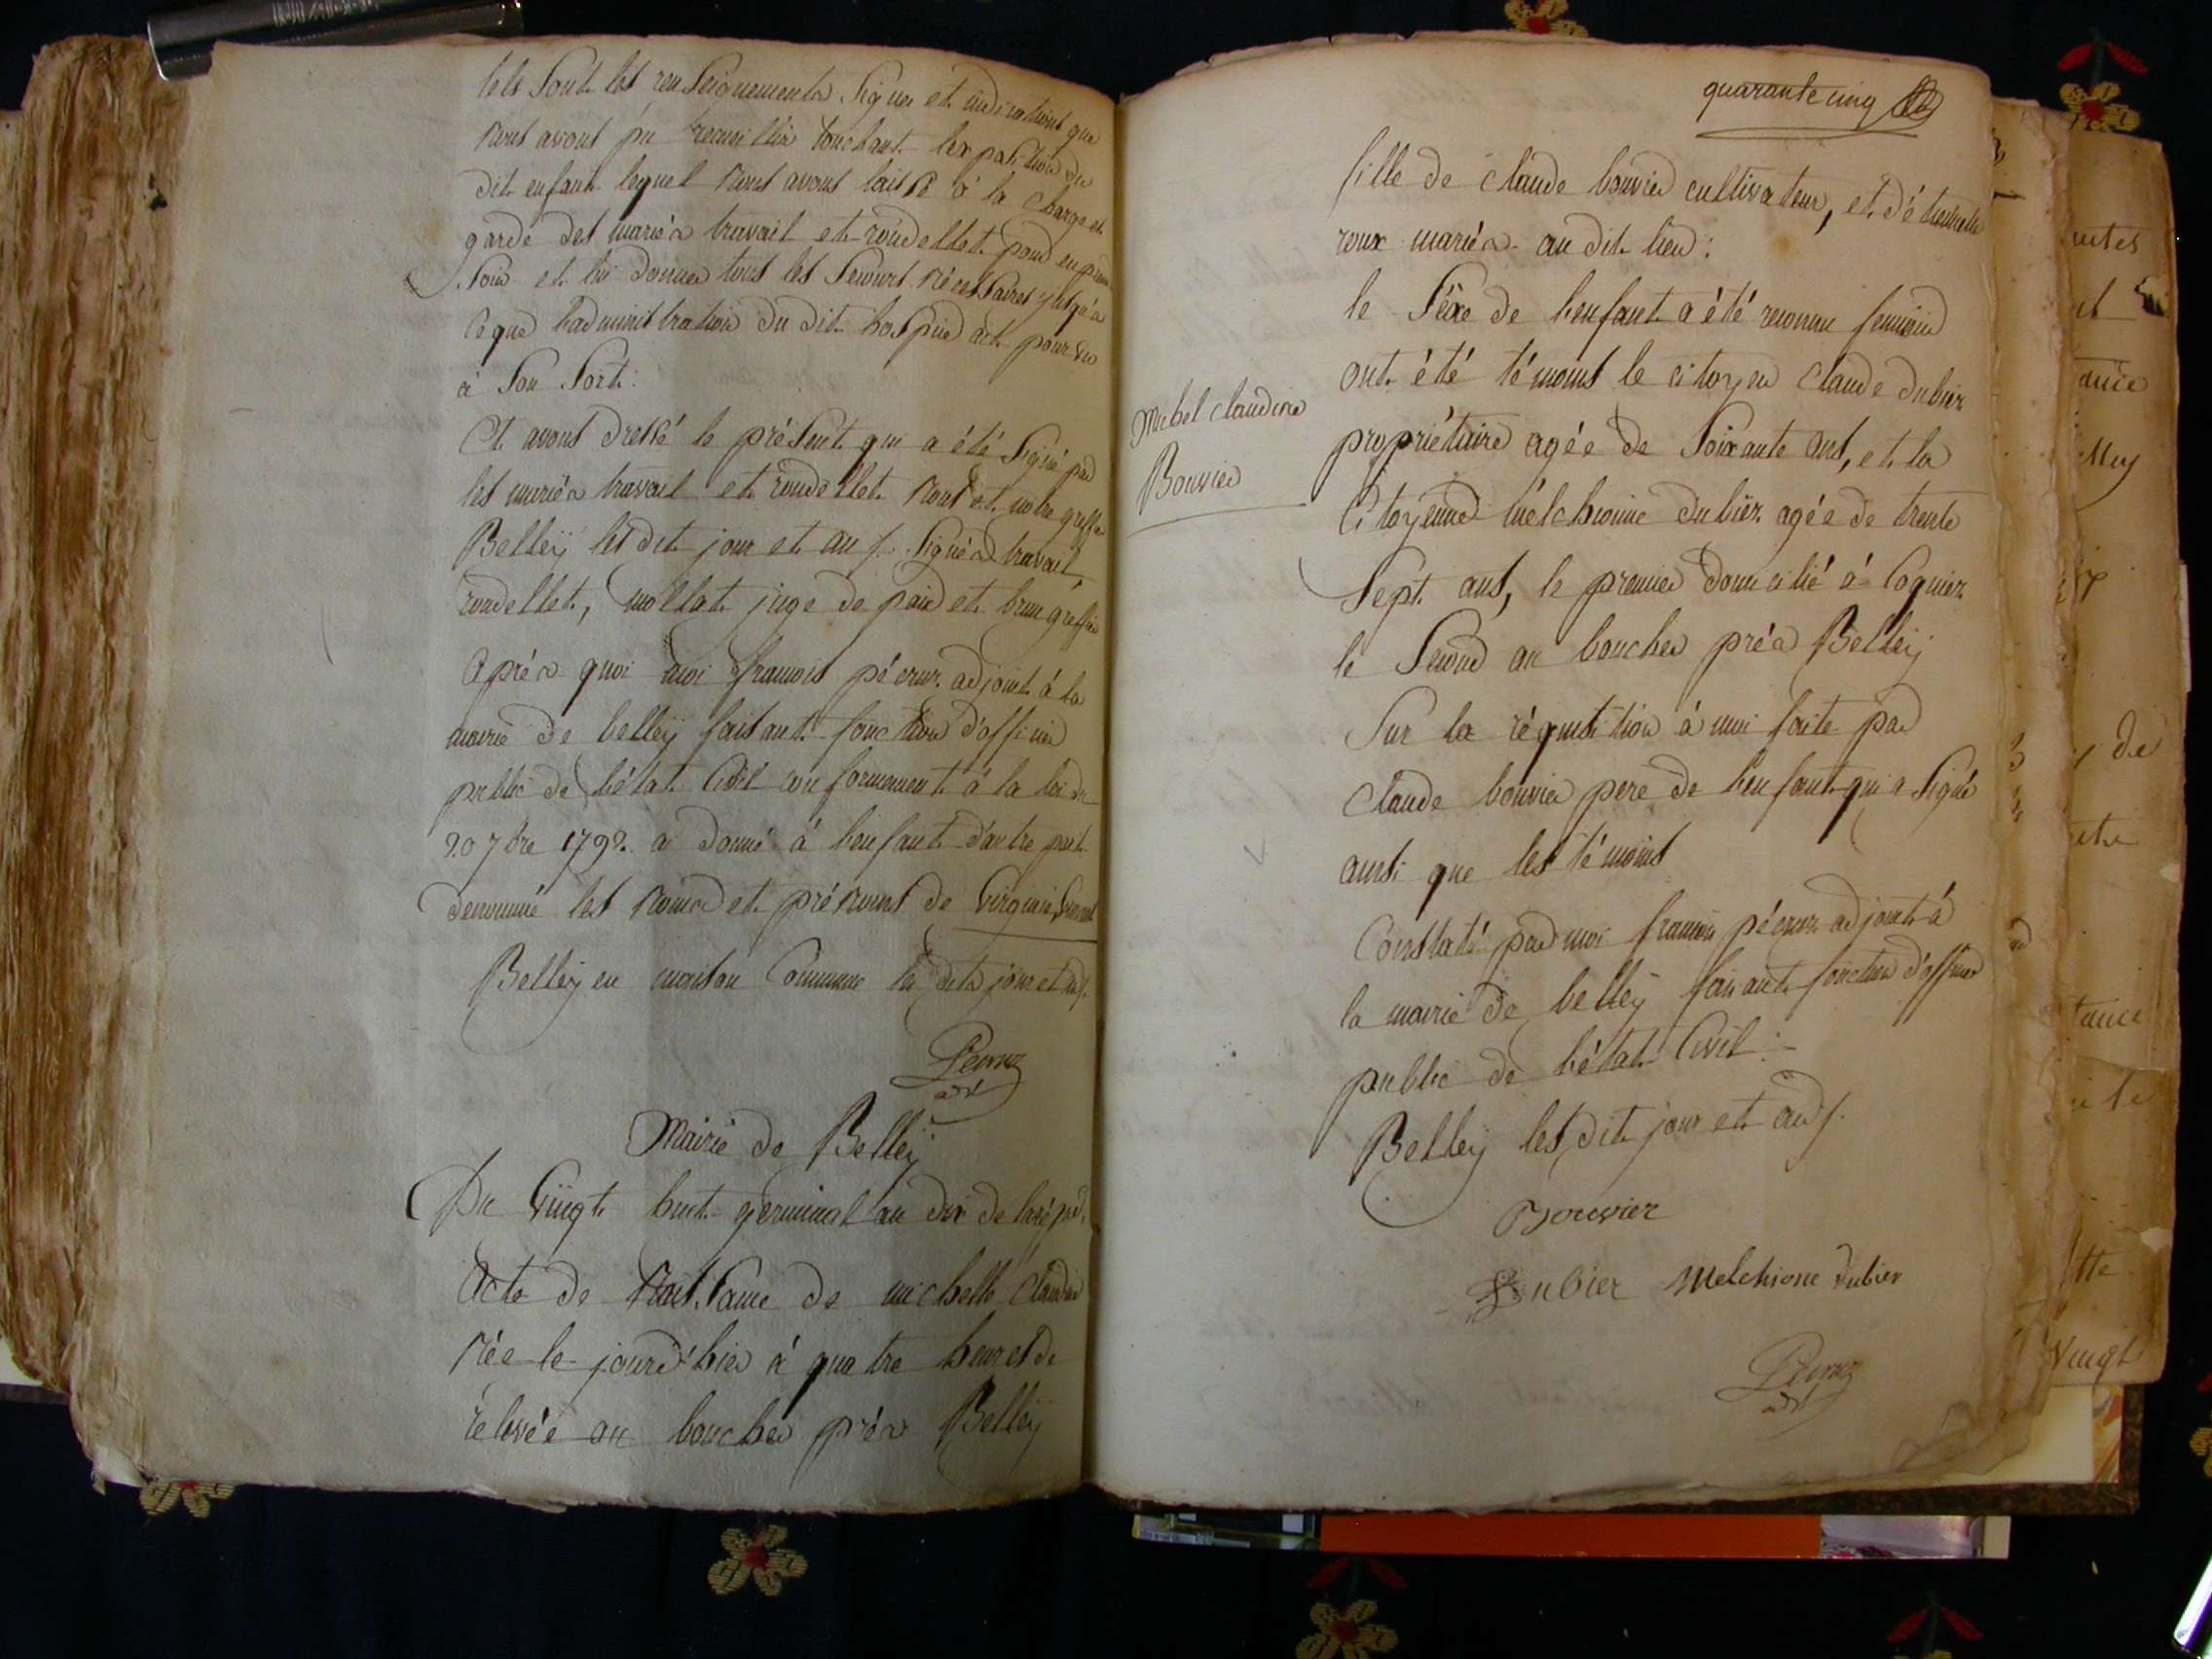 tels sont les renseignements signes et indications que
nous avons pu recueillir touchant lexposition du
dit enfant lequel nous avons laissé à la charge et
garde des mariés travail et rondellet pour en prendre
soin et lui donner tous les secours nécessaires jusqu'à
ce que l'administration du dit hospice ait pourvu
à son sort:
Et avons dressé le présent qui a été signé par
les mariés travail et rondellet nous et notre greffier
Belleÿ les dit jour et an /. signés travail,
rondellet, mollat juge de paix et brun greffier
Après quoi moi françois pécruz adjoint à la
mairie de belleÿ faisant fonction d'officier
public de l'état Civil conformement à la loi du
20 7bre 1792 a donné à l'enfant d'autre part
denommé les noms et prénoms de Virginie
Belleÿ en maison Commune les dits jour et an /.
Mairie de Belleÿ
Du Vingt huit germinal an dix de la rép.
Acte de Naissance de michelle Claudine
Née le jourd'hier à quatre heures de
rélevée au boucher près Belleÿ
quarante cinq
fille de Claude bouvier cultivateur, et d'
roux mariés au dit lieu:
le Séxe de l'enfant a été reconnu feminin
Ont été témoins le citoyen Claude dubier
Michel claudine
Bouvier
propriétaire agée de Soixante ans, et la
Citoyenne mélchionne dubier agée de trente
Sept ans, le premier domicilié à Cognier
le Second au boucher près Belleÿ
Sur la réquisition à moi faite par
Claude bouvier pere de l'enfant qui a Signé
ainsi que les témoins
Constaté par moi françois pécruz adjoint à
la mairie de belleÿ faisant fonction d'officier
public de l'état Civil:
Belleÿ les dit jour et an /.
Bouvier
Dubier Melchione dubier